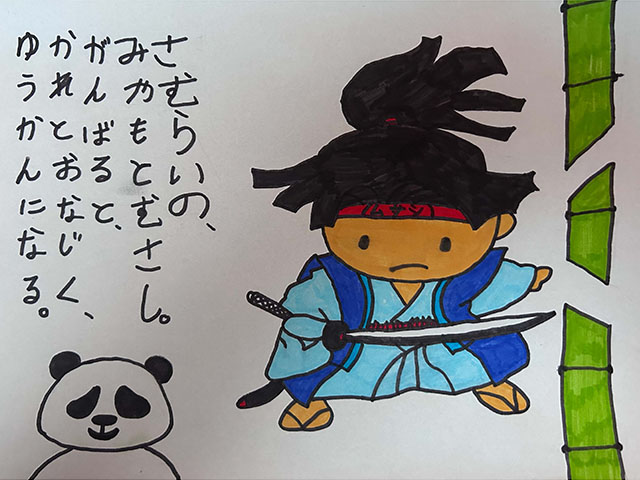 さむらいの、
みやもとむさし。
がんばると、
かれとおなじく、
ゆうかんになる。